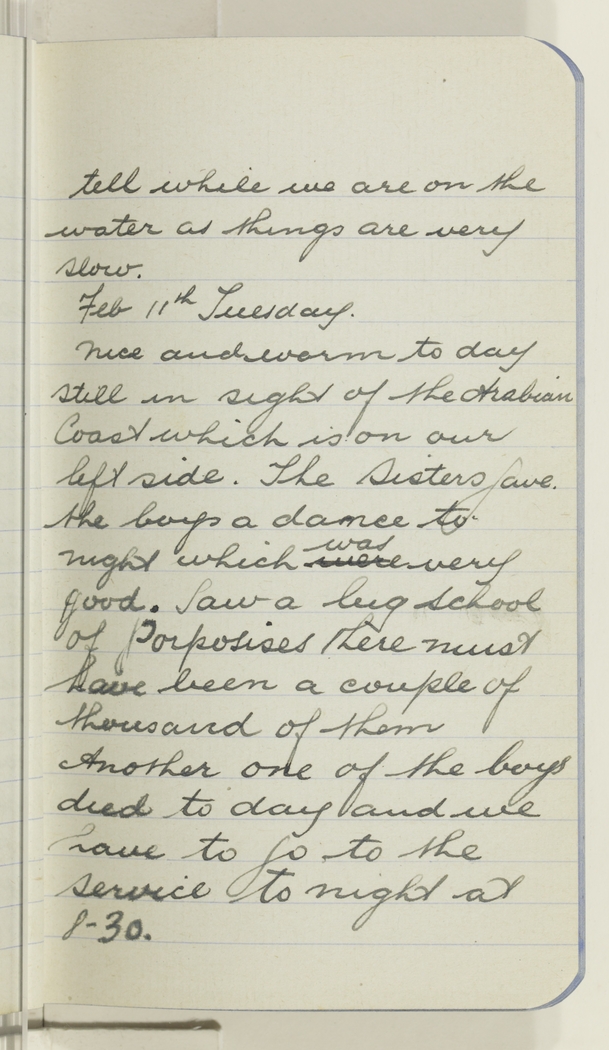 tell while we are on the
water as things are very
slow.
Feb 11th Tuesday.
Nice and worm to day
still in sight of the Arabian
Coast which is on our
left side. The Sisters gave.
the boys a dance to
night which was were very
good. Saw a big school
of Porposises there must
have been a couple of
thousand of them
Another one of the boys
died to day and we
have to go to the
service to night at
8-30.